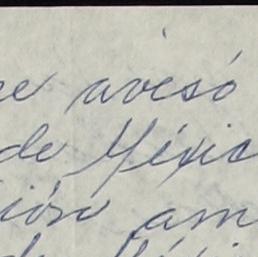 re avisó
de Méxic
ión am